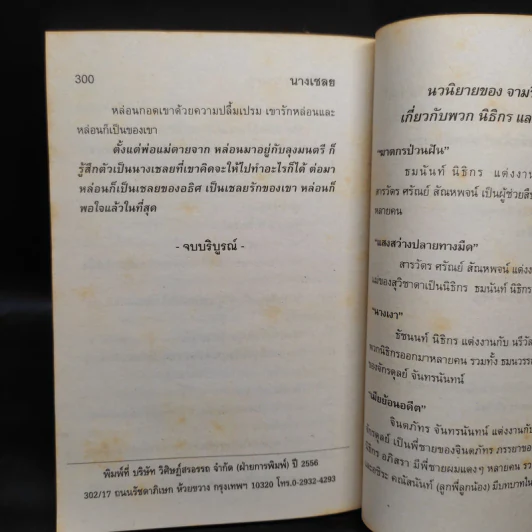 300
นางเชลย
หล่อนกอดเขาด้วยความปลื้มเปรม เขารักหล่อนและ
หล่อนก็เป็นของเขา
ตั้งแต่พ่อแม่ตายจาก หล่อนมาอยู่กับลุงมนตรี ก็
รู้สึกตัวเป็นนางเชลยที่เขาคิดจะให้ไปทำอะไรก็ได้ ต่อมา
หล่อนก็เป็นเชลยของอธิศ เป็นเชลยรักของเขา หล่อนก็
พอใจแล้วในที่สุด
- จบบริบูรณ์ -
พิมพ์ที่ บริษัท วิศิษฎ์สรอรรถ จำกัด (ฝ่ายการพิมพ์) ปี 2556
302/17 ถนนรัชดาภิเษก ห้วยขวาง กรุงเทพฯ 10320 โทร.0-2932-4293
นวนิยายของ
เกี่ยวกับพวก นิธิกร
"ฆาตกรป่วนฝัน"
ธมนันท์ นิธิกร แต่งงาน
สารวัตร ศรัณย์ สัณหพจน์ เป็นผู้ช่วย
หลายคน
"แสงสว่างปลายทางมืด"
สารวัตร ศรัณย์ สัณหพจน์
แม่ของสุวิชาดาเป็นนิธิกร ธมนันท์ นิธิกร
"นางเงา"
ธัชนนท์ นิธิกร แต่งงานกับ
พวกนิธิกรออกมาหลายคน รวมทั้ง
ของจักรดุลย์ จันทรนันทน์
"เมียย้อนอดีต"
จินตภัทร จันทรนันทน์ แต่งงานกับ
จักรดุลย์ เป็นพี่ชายของจินตภัทร
นิธิกร อภิสรา มีพี่ชายผมแดงๆ หลายคน
คณัสนันท์ (ลูกพี่ลูกน้อง)